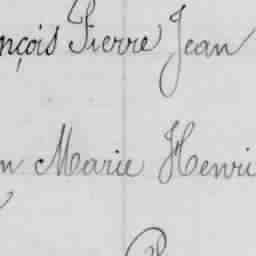 nçois Pierre Jean
n Marie Henri